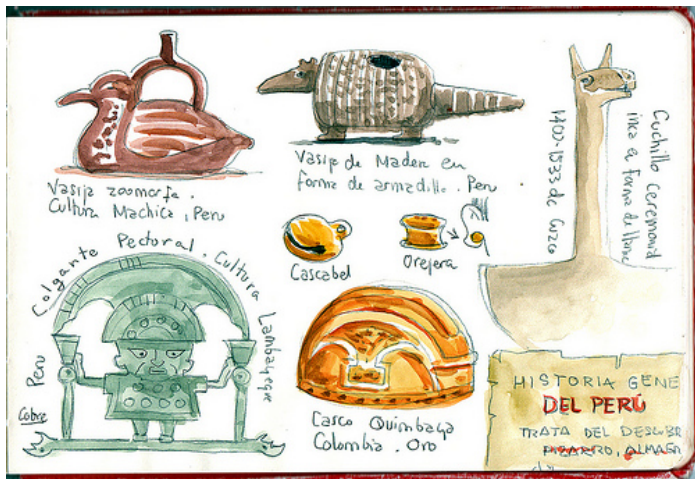 Vasija zoomorfa.
Cultura Machica, Peru
Vasija de Madera en
forma de armadillo. Peru
Cuchillo Ceremonial
inka en forma de llama
1400-1533 de Cuzco
Cascabel
Orejera
Colgante Pectoral. Cultura Lambayeque
Peru
Cobre
Casco Quimbaya
Colombia. Oro
HISTORIA GENE
DEL PERÚ
TRATA DEL DESCUBR
PIZARRO, ALMAGR